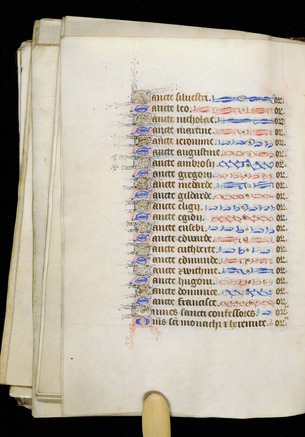 Sancte silvestri. or.
Sancte leo. or.
Sancte nicholae. or.
Sancte martine. or.
Sancte ieronime. or.
Sancte augustine. or.
Sancte ambrosij. or.
Sancte gregorij. or.
Sancte medarde. or.
Sancte gildarde. or.
Sancte eligij. or.
Sancte egidij. or.
Sancte or.
Sancte edwarde. or.
Sancte cuthberte. or.
Sancte edmunde. or.
Sancte swithine. or.
Sancte hugoni. or.
Sancte dominice. or.
Sancte francisce. or.
Omnes sancti confessores or.
Omnes sci monachi & heremite. or.